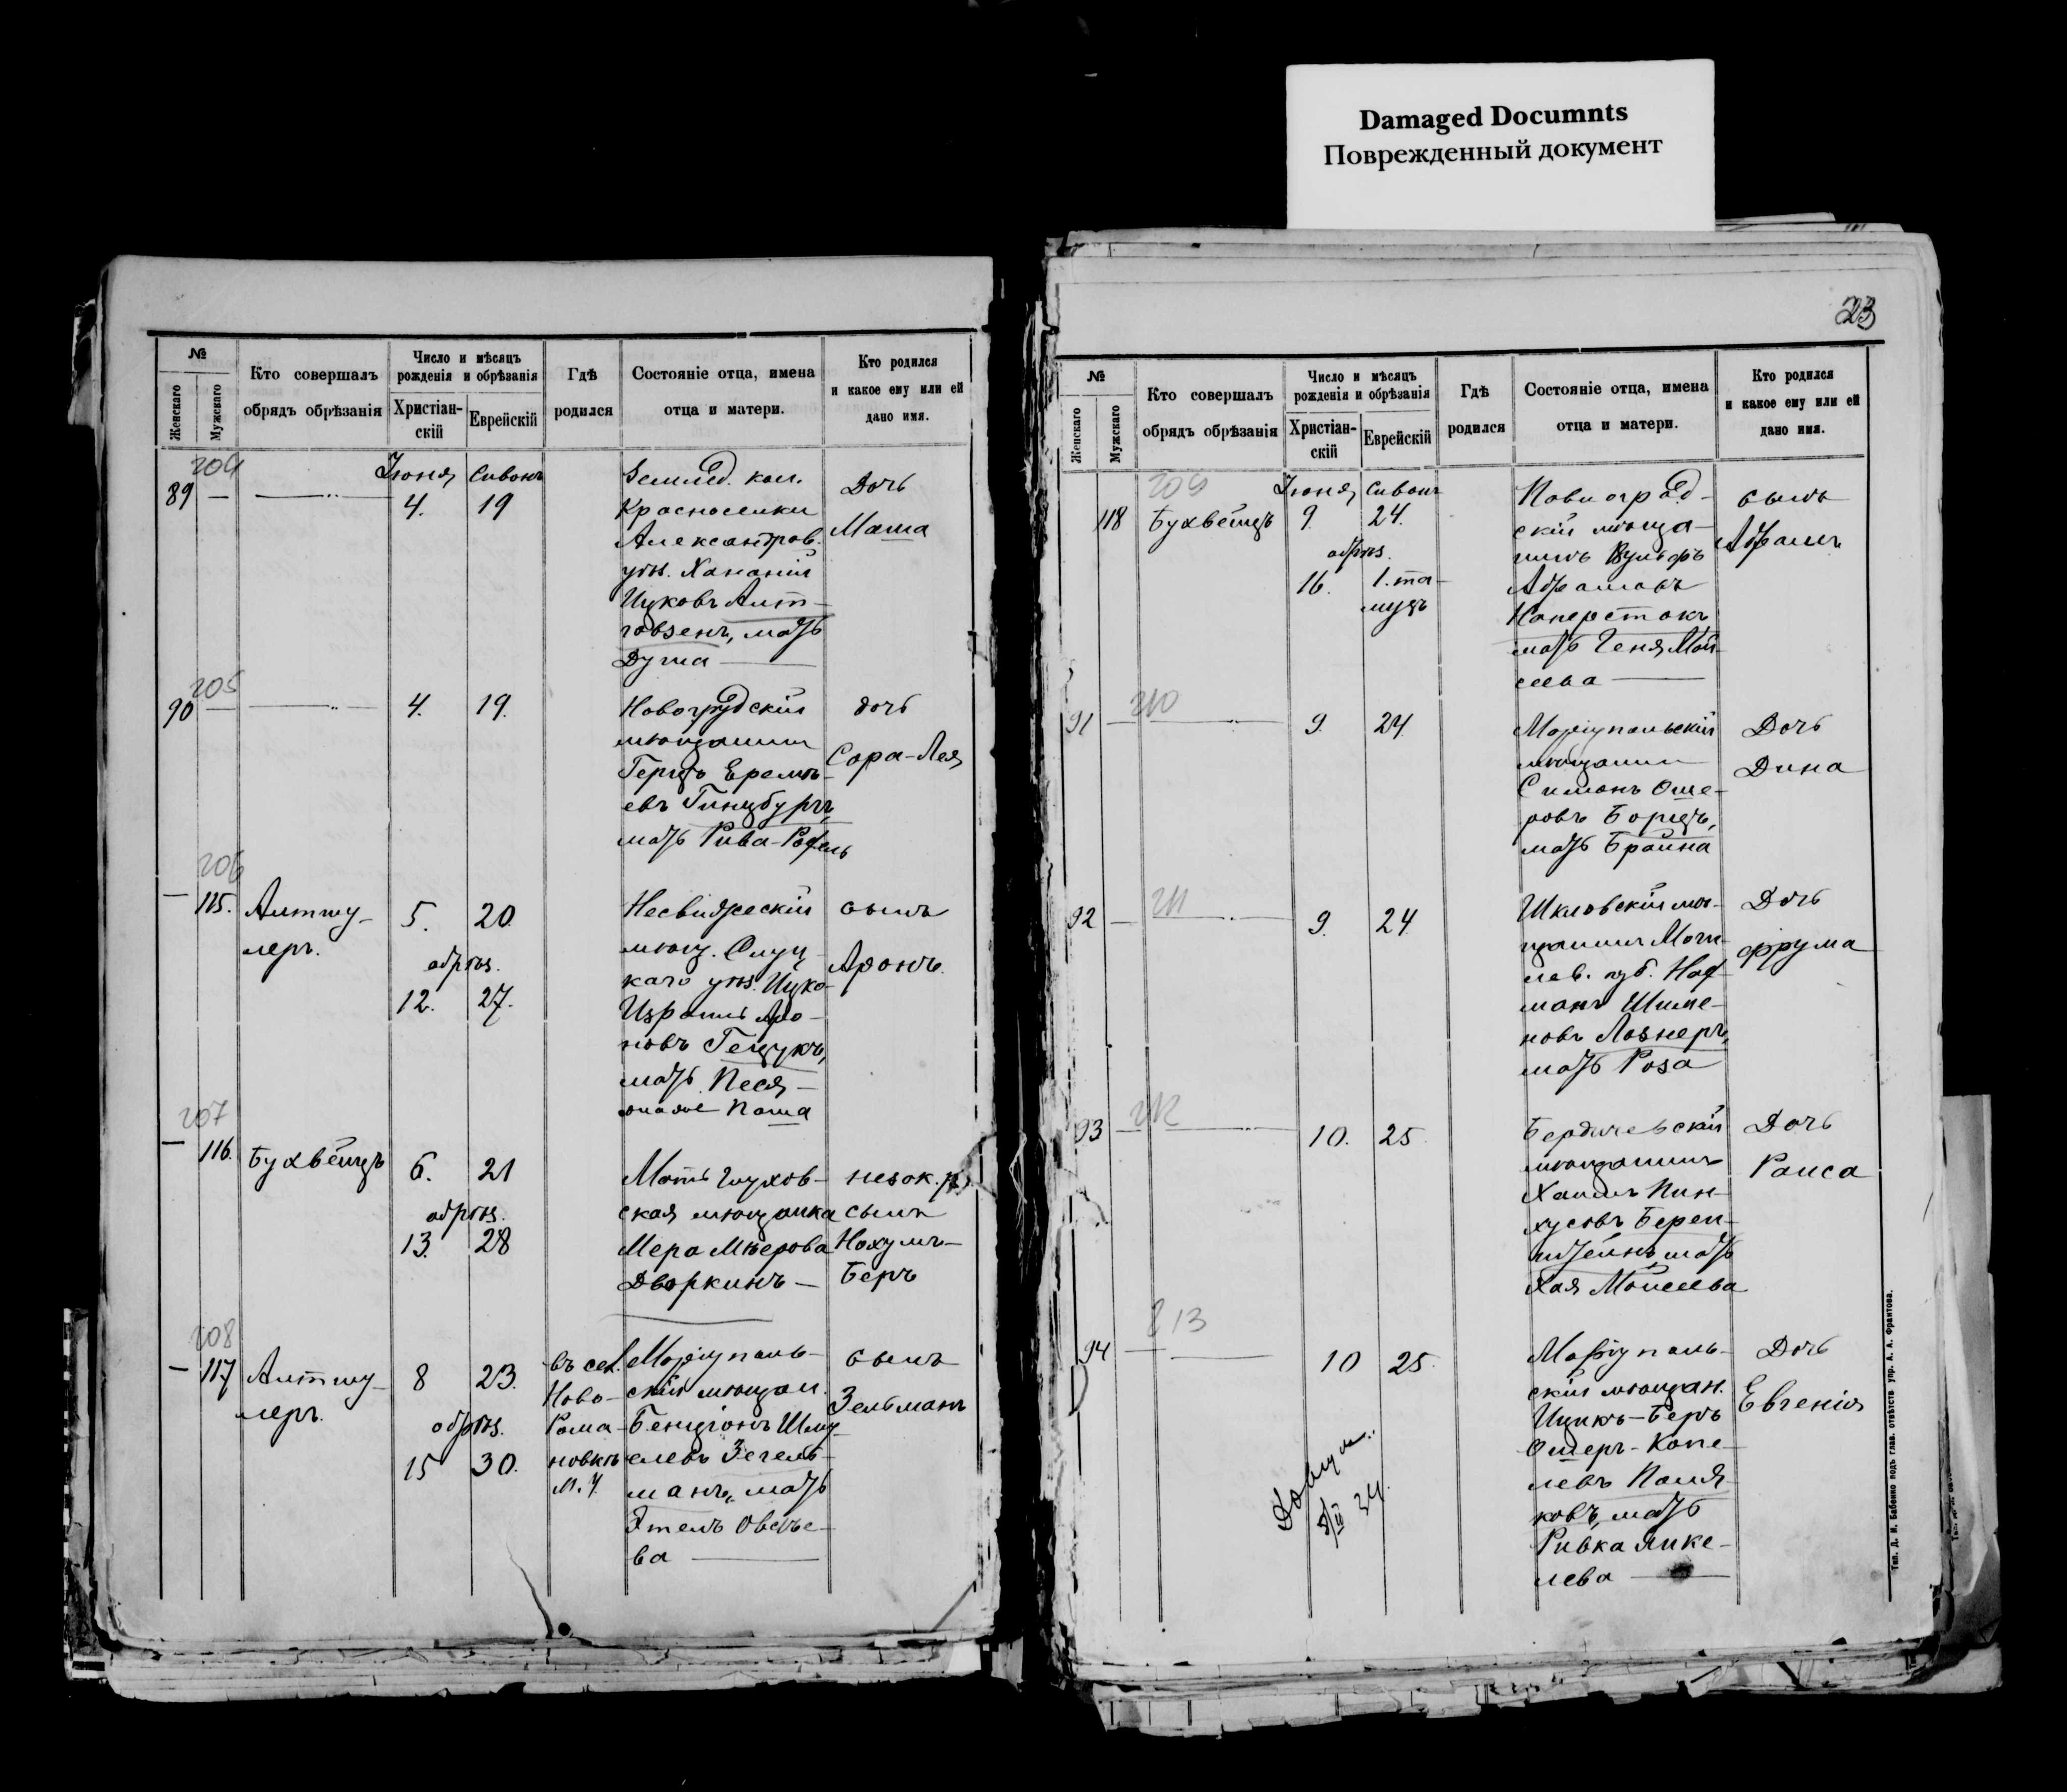 Damaged Documnts
Поврежденный документ
№
Женскаго
Мужскаго
Кто совершалъ
обрядъ обрѣзанія
Число и мѣсяцъ
рожденія и обрѣзанія
Христіан-
скій
Еврейскій
Гдѣ
родился
Состояніе отца, имена
отца и матери.
Кто родился
и какое ему или ей
дано имя.
204
89 —
Іюня Сивонъ
4. 19
Землед. кол.
Красноселки
Александров.
уѣз. Хананій
Ицковъ Альт-
гаузенъ, мать
Душа
Дочь
Маша
205
90 —
4. 19.
Новогрудскій
мѣщанинъ
Герцъ Еремѣ-
евъ Гинцбургъ,
мать Рива-Рохель
дочь
Сора-Лея
206
— 115.
Алтшу-
леръ.
5. 20.
обрѣз.
12. 27.
Несвижескій
мѣщ. Слуц-
каго уѣз. Ицко-
Израиль Аро-
новъ Гецукъ,
мать Песя-
она же Паша
сынъ
Аронъ.
207
— 116.
Бухвейцъ
6. 21
обрѣз.
13. 28
Мать Глухов-
ская мѣщанка
Мера Мѣерова
Дворкинъ —
незак. р.
сынъ
Нохумъ-
Беръ
208
— 117
Алтшу-
леръ.
8 23.
обрѣз.
15 30.
въ сел.
Ново-
Рома-
новкѣ
М. У.
Маріуполь-
скій мѣщан.
Бенціонъ Шму-
елевъ Зегель-
манъ, мать
Этель Овсѣе-
ва
сынъ
Зельманъ
23
№
Женскаго
Мужскаго
Кто совершалъ
обрядъ обрѣзанія
Число и мѣсяцъ
рожденія и обрѣзанія
Христіан-
скій
Еврейскій
Гдѣ
родился
Состояніе отца, имена
отца и матери.
Кто родился
и какое ему или ей
дано имя.
209
118
Бухвейцъ
Іюня Сивонъ
9. 24.
обрѣз.
16. 1. та-
муцъ
Павлоград-
скій мѣща-
нинъ Вульфъ
Абрамовъ
Наперстокъ
мать Геня Мой-
сеева
сынъ
Абрамъ
210
91 —
9. 24.
Маріупольскій
мѣщанинъ
Симонъ Оше-
ровъ Борщъ,
мать Брайна
Дочь
Дина
211
92 —
9. 24
Шкловскій мѣ-
щанинъ Моги-
лев. губ. Наф-
манъ Шиме-
новъ Лознеръ,
мать Роза
Дочь
Фрума
212
93 —
10. 25
Бердичевскій
мѣщанинъ
Хаимъ Пин-
хусовъ Берен-
штейнъ, мать
Хая Мойсеева
Дочь
Раиса
213
94 —
10 25.
Маріуполь-
скій мѣщан.
Ицикъ-Беръ
Ошеръ-Копе-
левъ Поля-
ковъ, мать
Ривка Янке-
лева
Дочь
Евгенія
8/III 34.
Тип. Д. И. Бабенко подъ глав. отвѣтств упр. А. А. Франтова.